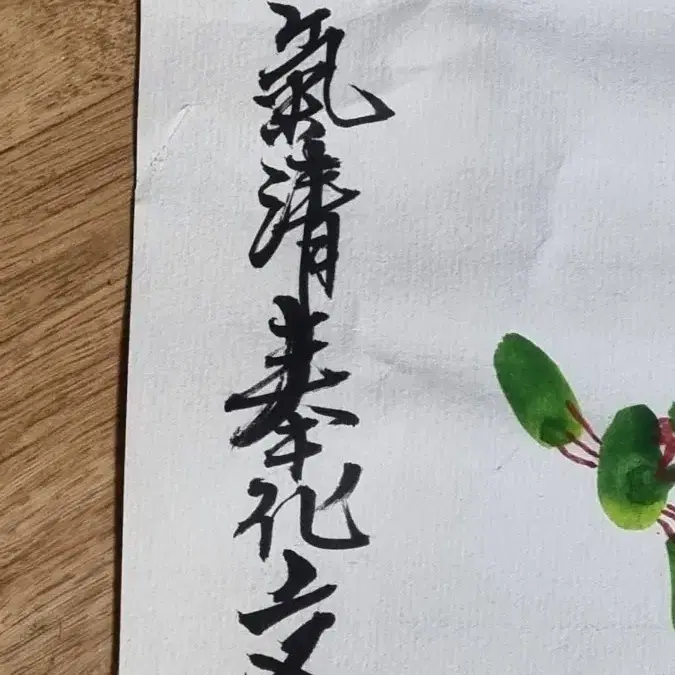 氣清奉化